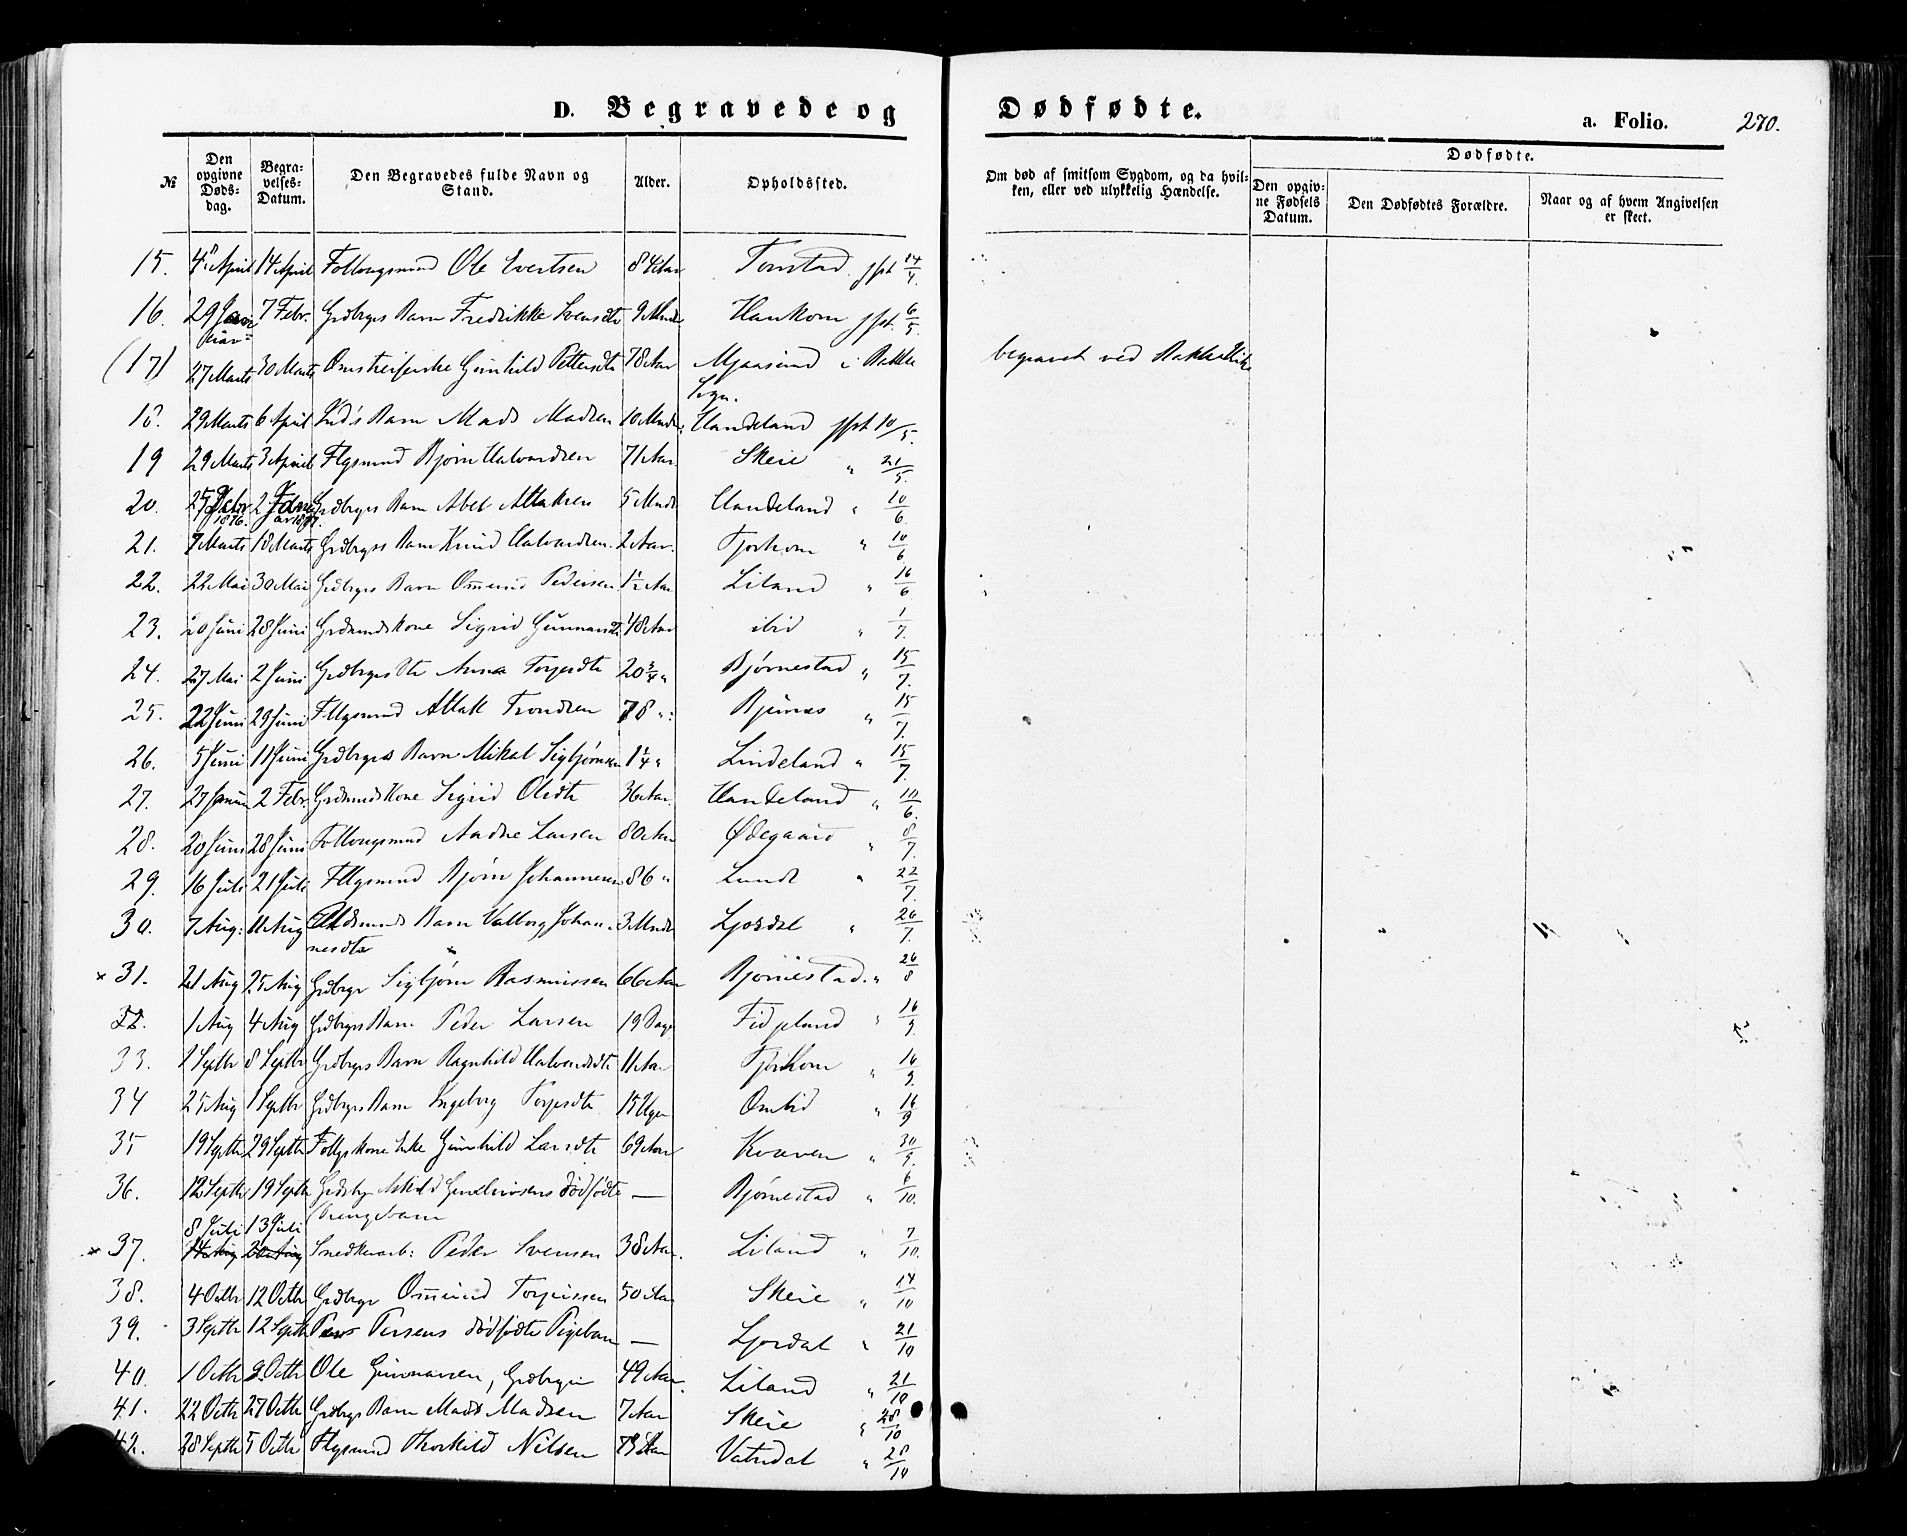 D. Begravede og Dødfødte.
a. Folio. 270.
№ Den opgivne Døds-dag. Begra-velses-Datum. Den Begravedes fulde Navn og Stand. Alder. Opholdssted. Om død af smitsom Sygdom, og da hvil-ken, eller ved ulykkelig Hændelse. Dødfødte. Den opgiv-ne Fødsels Datum. Den Dødfødtes Forældre. Naar og af hvem Angivelsen er skeet.
15. 4 April 14 April Follougsmand Ole Evertsen 84 Aar Tonstad jfst 14/4.
16. 29 Januar 7 Febr. Grdbrgrs Barn Fredrikke Svensdtr 9 Mndr Haukom jfst. 6/5.
(17) 27 Marts 30 Marts Omstreiferske Gunhild Pettersdtr 78 Aar Mjaasund i Bakke Sogn. begravet ved Bakke Kirke
18. 29 Marts 6 April Inds Barn Mads Madsen 10 Mndr. Handeland jfst 10/5.
19 29 Marts 3 April Flgsmand Bjørn Halvardsen 71 Aar Skeie " 21/5.
20. 25 Decbr 1876. 2 Januar 1877. Grdbrgrs Barn Abel Atlaksen 5 Mndr Handeland " 10/6.
21. 7 Marts 18 Marts Grdbrgrs Barn Knud Halvardsen. 2 Aar. Tjorhom " 10/6
22. 22 Mai 30 Mai Grdbrgrs Barn Ommund Pedersen 1½ Aar Liland " 16/6
23. 20 Juni 28 Juni Grdmands Kone Sigrid Gunnarsdtr 48 Aar ibid " 1/7.
24. 27 Mai 2 Juni Grdbrgrs Dtr Anna Torjesdtr 20¾ " Bjørnestad " 15/7.
25. 22 Juni 29 Juni Fllgsmand Atlak Trondsen 78 " Bjunes " 15/7.
26. 5 Juni 11 Juni Grdbrgrs Barn Mikal Sigbjørnsen 1¼ " Lindeland " 15/7.
27. 27 Januar 2 Febr. Grdmands Kone Sigrid Olsdtr 36 Aar. Handeland " 10/6.
28. 20 Juni 28 Juni Follougsmand Aadne Larsen 80 Aar Ødegaard " 8/7.
29. 16 Juli 21 Juli Fllgsmand Bjørn Johannesen 86 " Lunde " 22/7.
30. 7 Aug: 11 Aug Barn Valborg Johan-nesdtr 3 Mndr Ljosdal " 26/7.
× 31. 21 Aug 25 Aug Grdbrgr Sigbjørn Rasmussen 66 Aar Bjørnestad. " 26/8
32. 1 Aug 4 Aug Grdbrgrs Barn Peder Larsen 19 Dage Fidjeland " 16/9.
33. 1 Septbr 8 Septbr Grdbrgrs Barn Ragnhild Halvardsdtr 11 Aar Tjorhom " 16/9.
34 25 Aug 1 Septbr Grdbrgrs Barn Ingeborg Torjesdtr 15 Uger Omlid " 16/9
35 19 Septbr 29 Septbr Follgskone Enke Gunhild Larsdtr 69 Aar Kvæven " 30/9.
36. 12 Septbr 19 Septbr Grdbrgr Askild dødfødte Drengebarn — Bjørnestad " 6/10.
× 37. 8 Juli 13 Juli Snedkerarb: Peder Svensen 38 Aar. Liland " 7/10.
38. 4 Octbr 12 Octbr Grdbrgr Ommund Torjussen 50 Aar Skeie " 14/10
39. 3 Septbr 12 Septbr Peersens dødfødte Pigebarn — Ljosdal " 21/10
40. 1 Octbr 9 Octbr Ole Gunnarsen, Grdbrgr 49 Aar. Liland " 21/10
41. 22 Octbr 27 Octbr Grdbrgrs Barn Mads Madsen 7 Aar Skeie " 28/10
42. 28 Septbr 5 Octbr Flgsmand Thorkild Nilsen Aar Vatndal " 28/10